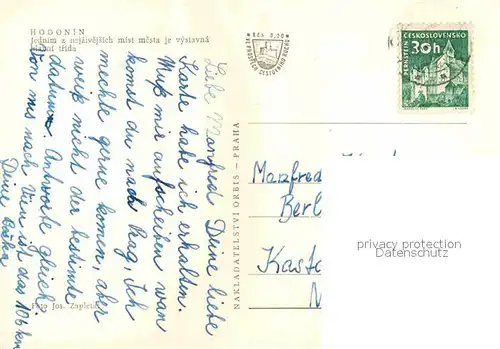 HODONÍN
Jedním z nejživějších míst města je výstavná
hlavní třída
Liebe Manfred Deine liebe
Karte habe ich erhalten.
Muß mir aufscheiben wan
komst du nach Prag, Ich
mechte gerne komen, aber
weiß nicht der bestimte
datum. Antworte gleich
Von uns nach Wien ist das 106 km
Deine
Foto Jos. Zapletal
NAKLADATELSTVÍ ORBIS – PRAHA
VE PROSPĚCH CESTOVNÍHO RUCHU
ČESKOSLOVENSKO
30h
PERNŠTEJN
Manfred
Berl
Kasta
N
privacy protection
Datenschutz